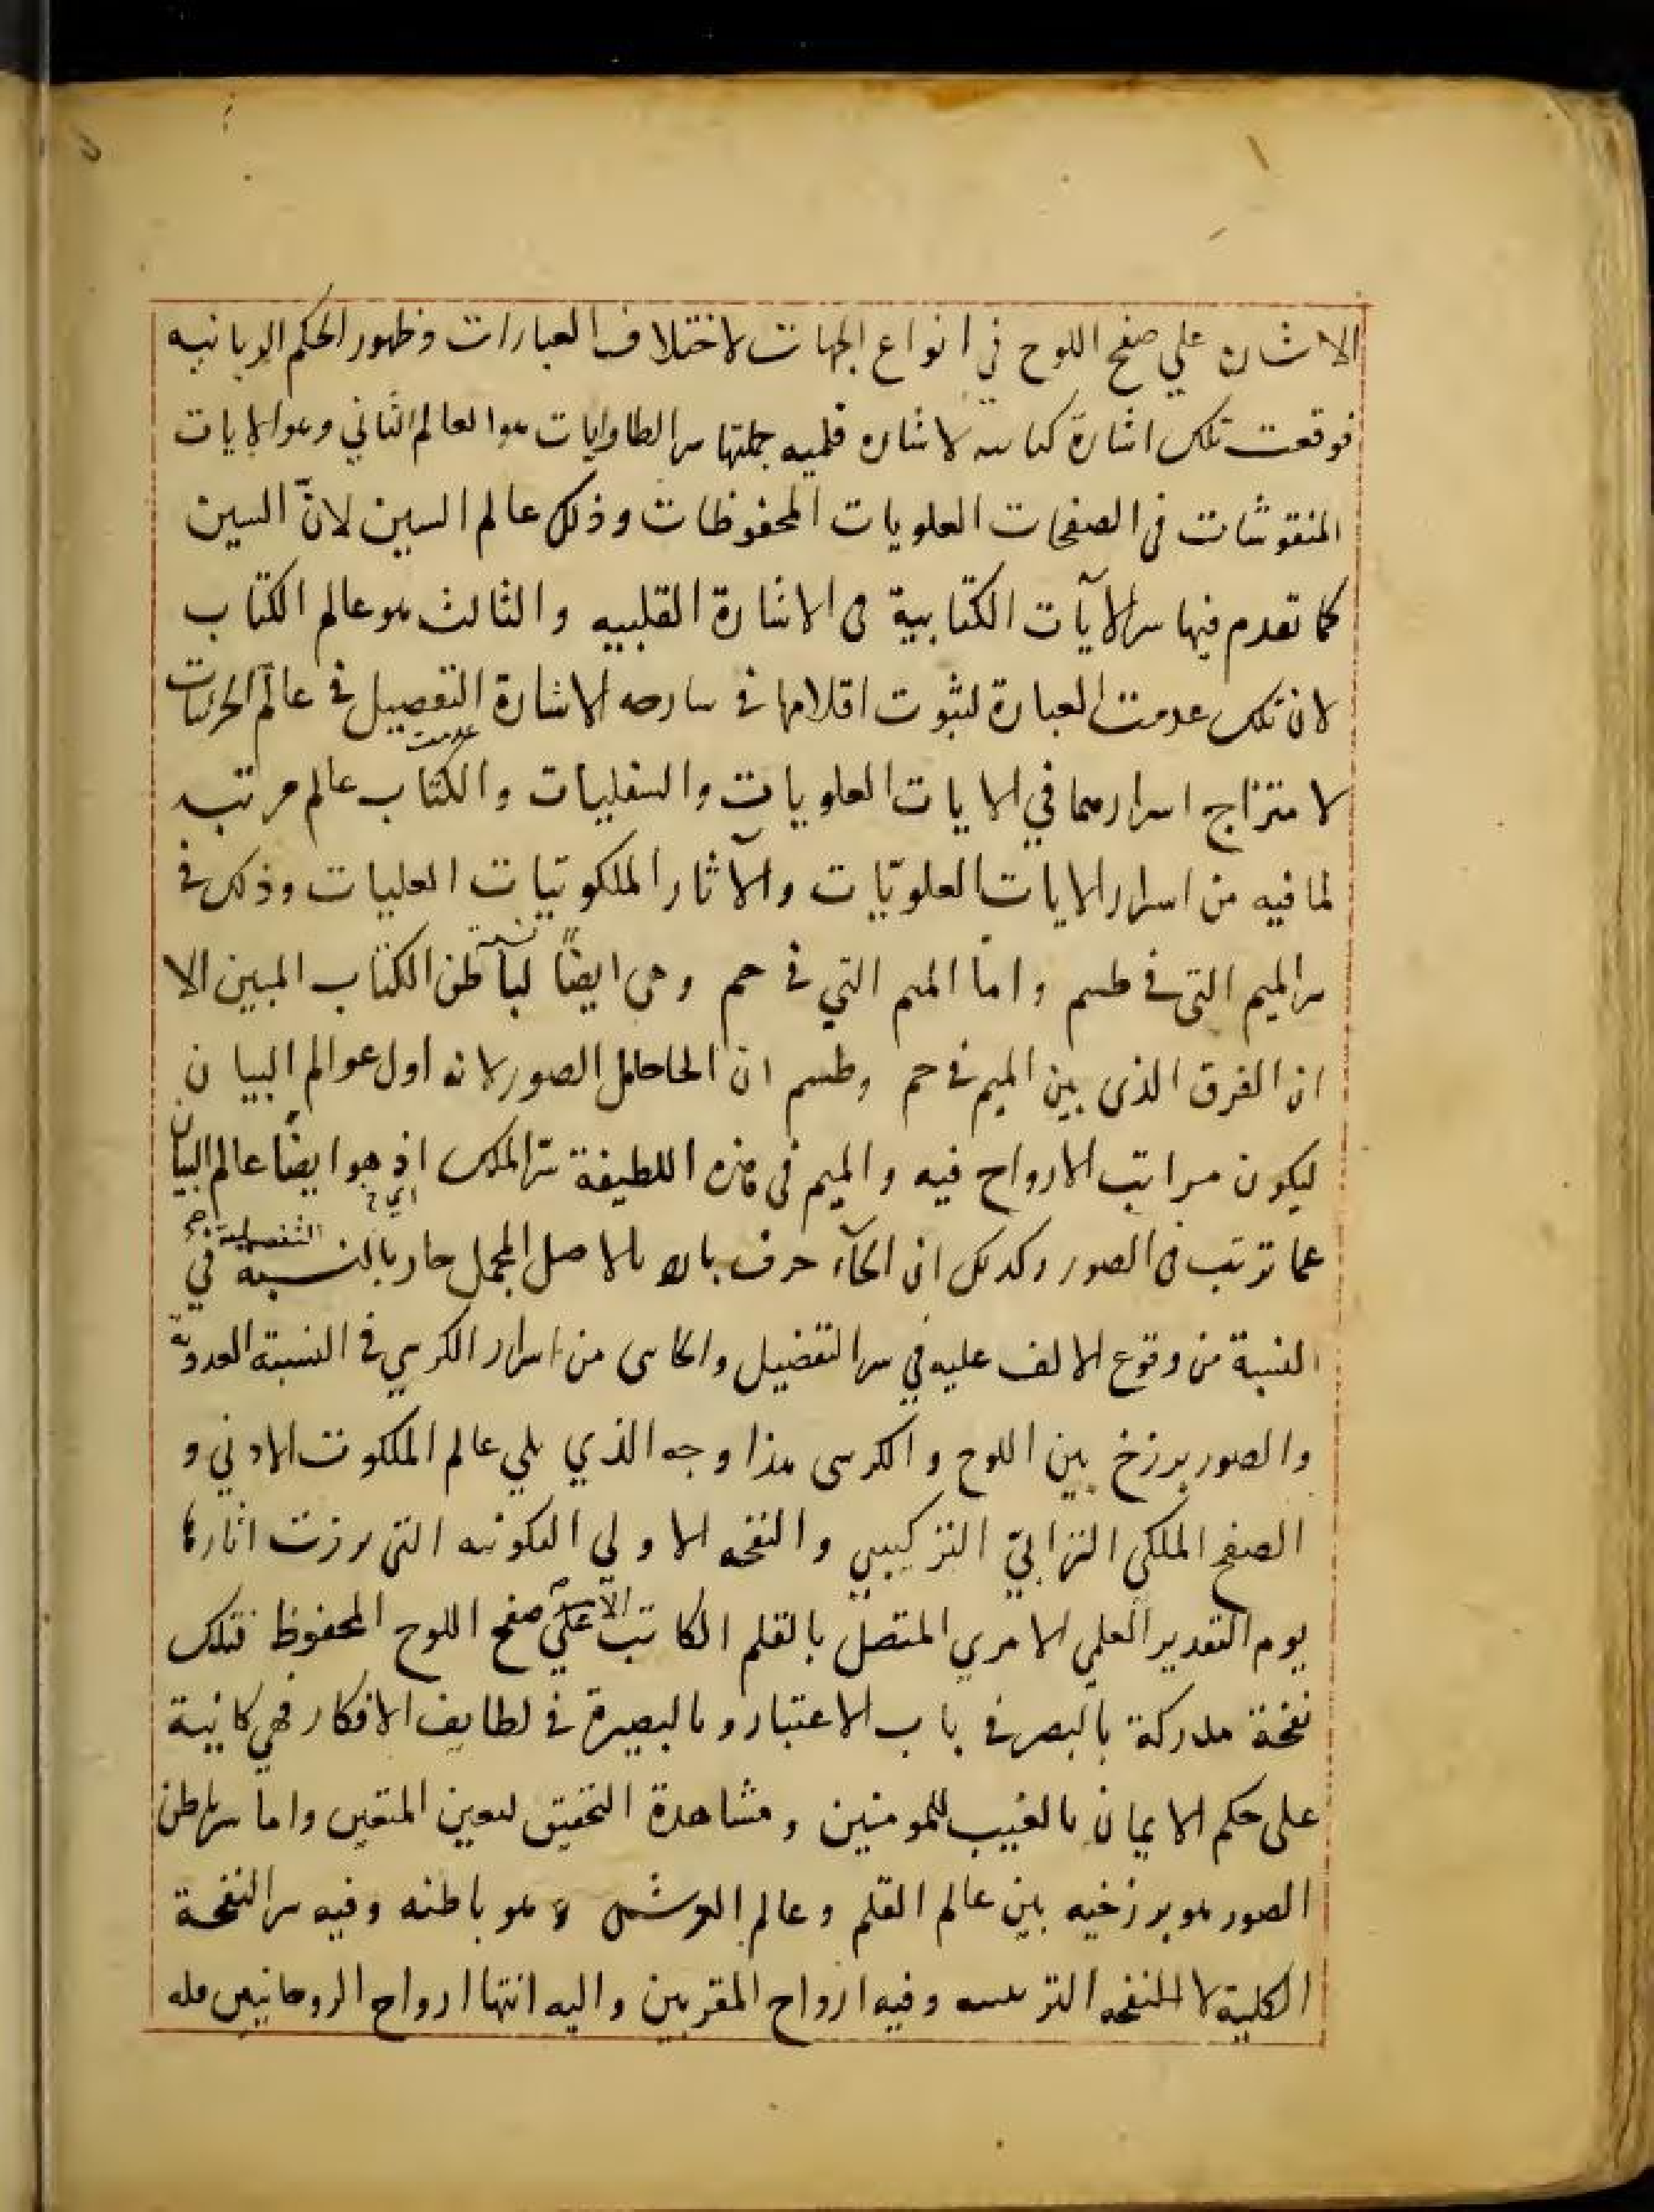 الاشاره علي صفح اللوح في انواع الجهات لاختلاف العبارات وظهور الحكم الربانيه
فوقعت تلك اشارة لاشاره قلميه جملتها سر هو العالم الثاني وهو الايات
المنقوشات في الصفحات العلويات المحفوظات وذلك عالم السين لانّ السين
كما تقدم فيها سر الآيات الكتابية في الاشارة القلبيه والثالث هو عالم الكتاب
لان تلك عدمت العبارة لثبوت اقلامها في الاشارة التفصيل في عالم
عدمت
لامتزاج اسرارهما في الايات العلويات والسفليات والكتاب عالم مرتبه
لما فيه من اسرار الايات العلويّات والآثار الملكوتيات العليات وذلك في
نسبة
سر الميم التي في طسم واما الميم التي في حم وهي ايضاً لباطن الكتاب المبين الا
ان الفرق الذي بين الميم في حم وطسم ان الحا حامل الصور لانه اول عوالم البيان
ليكون مراتب الارواح فيه والميم في هذه اللطيفة سرّ الملك اذ هو ايضاً عالم البيان
عما ترتب في الصور وكذلك ان الحآء حرف بالاصل المجمل حار بالنسبة في
التفصيلية صح
النسبة من وقوع الالف عليه في سر التفضيل من اسرار الكرسي في النسبة العددية
والصور برزخ بين اللوح والكرسى هذا وجه الذي يلي عالم الملكوت الادني و
الصفح الملكي الترابيّ التركيبي والنفخه الاولي التكوينه التي برزت اثارها
يوم التقدير العلمي الامري المتصل بالقلم الكاتب علي صفح اللوح المحفوظ فتلك
نفخة مدركة بالبصر في باب الاعتبار وبالبصيرة في لطايف الافكار فهي كانية
على حكم الايمان بالغيب للمومنين ومشاهدة التحقيق لعين المتقين واما سر باطن
الصور هو برزخيه بين عالم القلم وعالم العرش وهو باطنه وفيه سر النفخة
الكلية لا النفخه وفيه ارواح المقربين واليه انتها ارواح الروحانيين